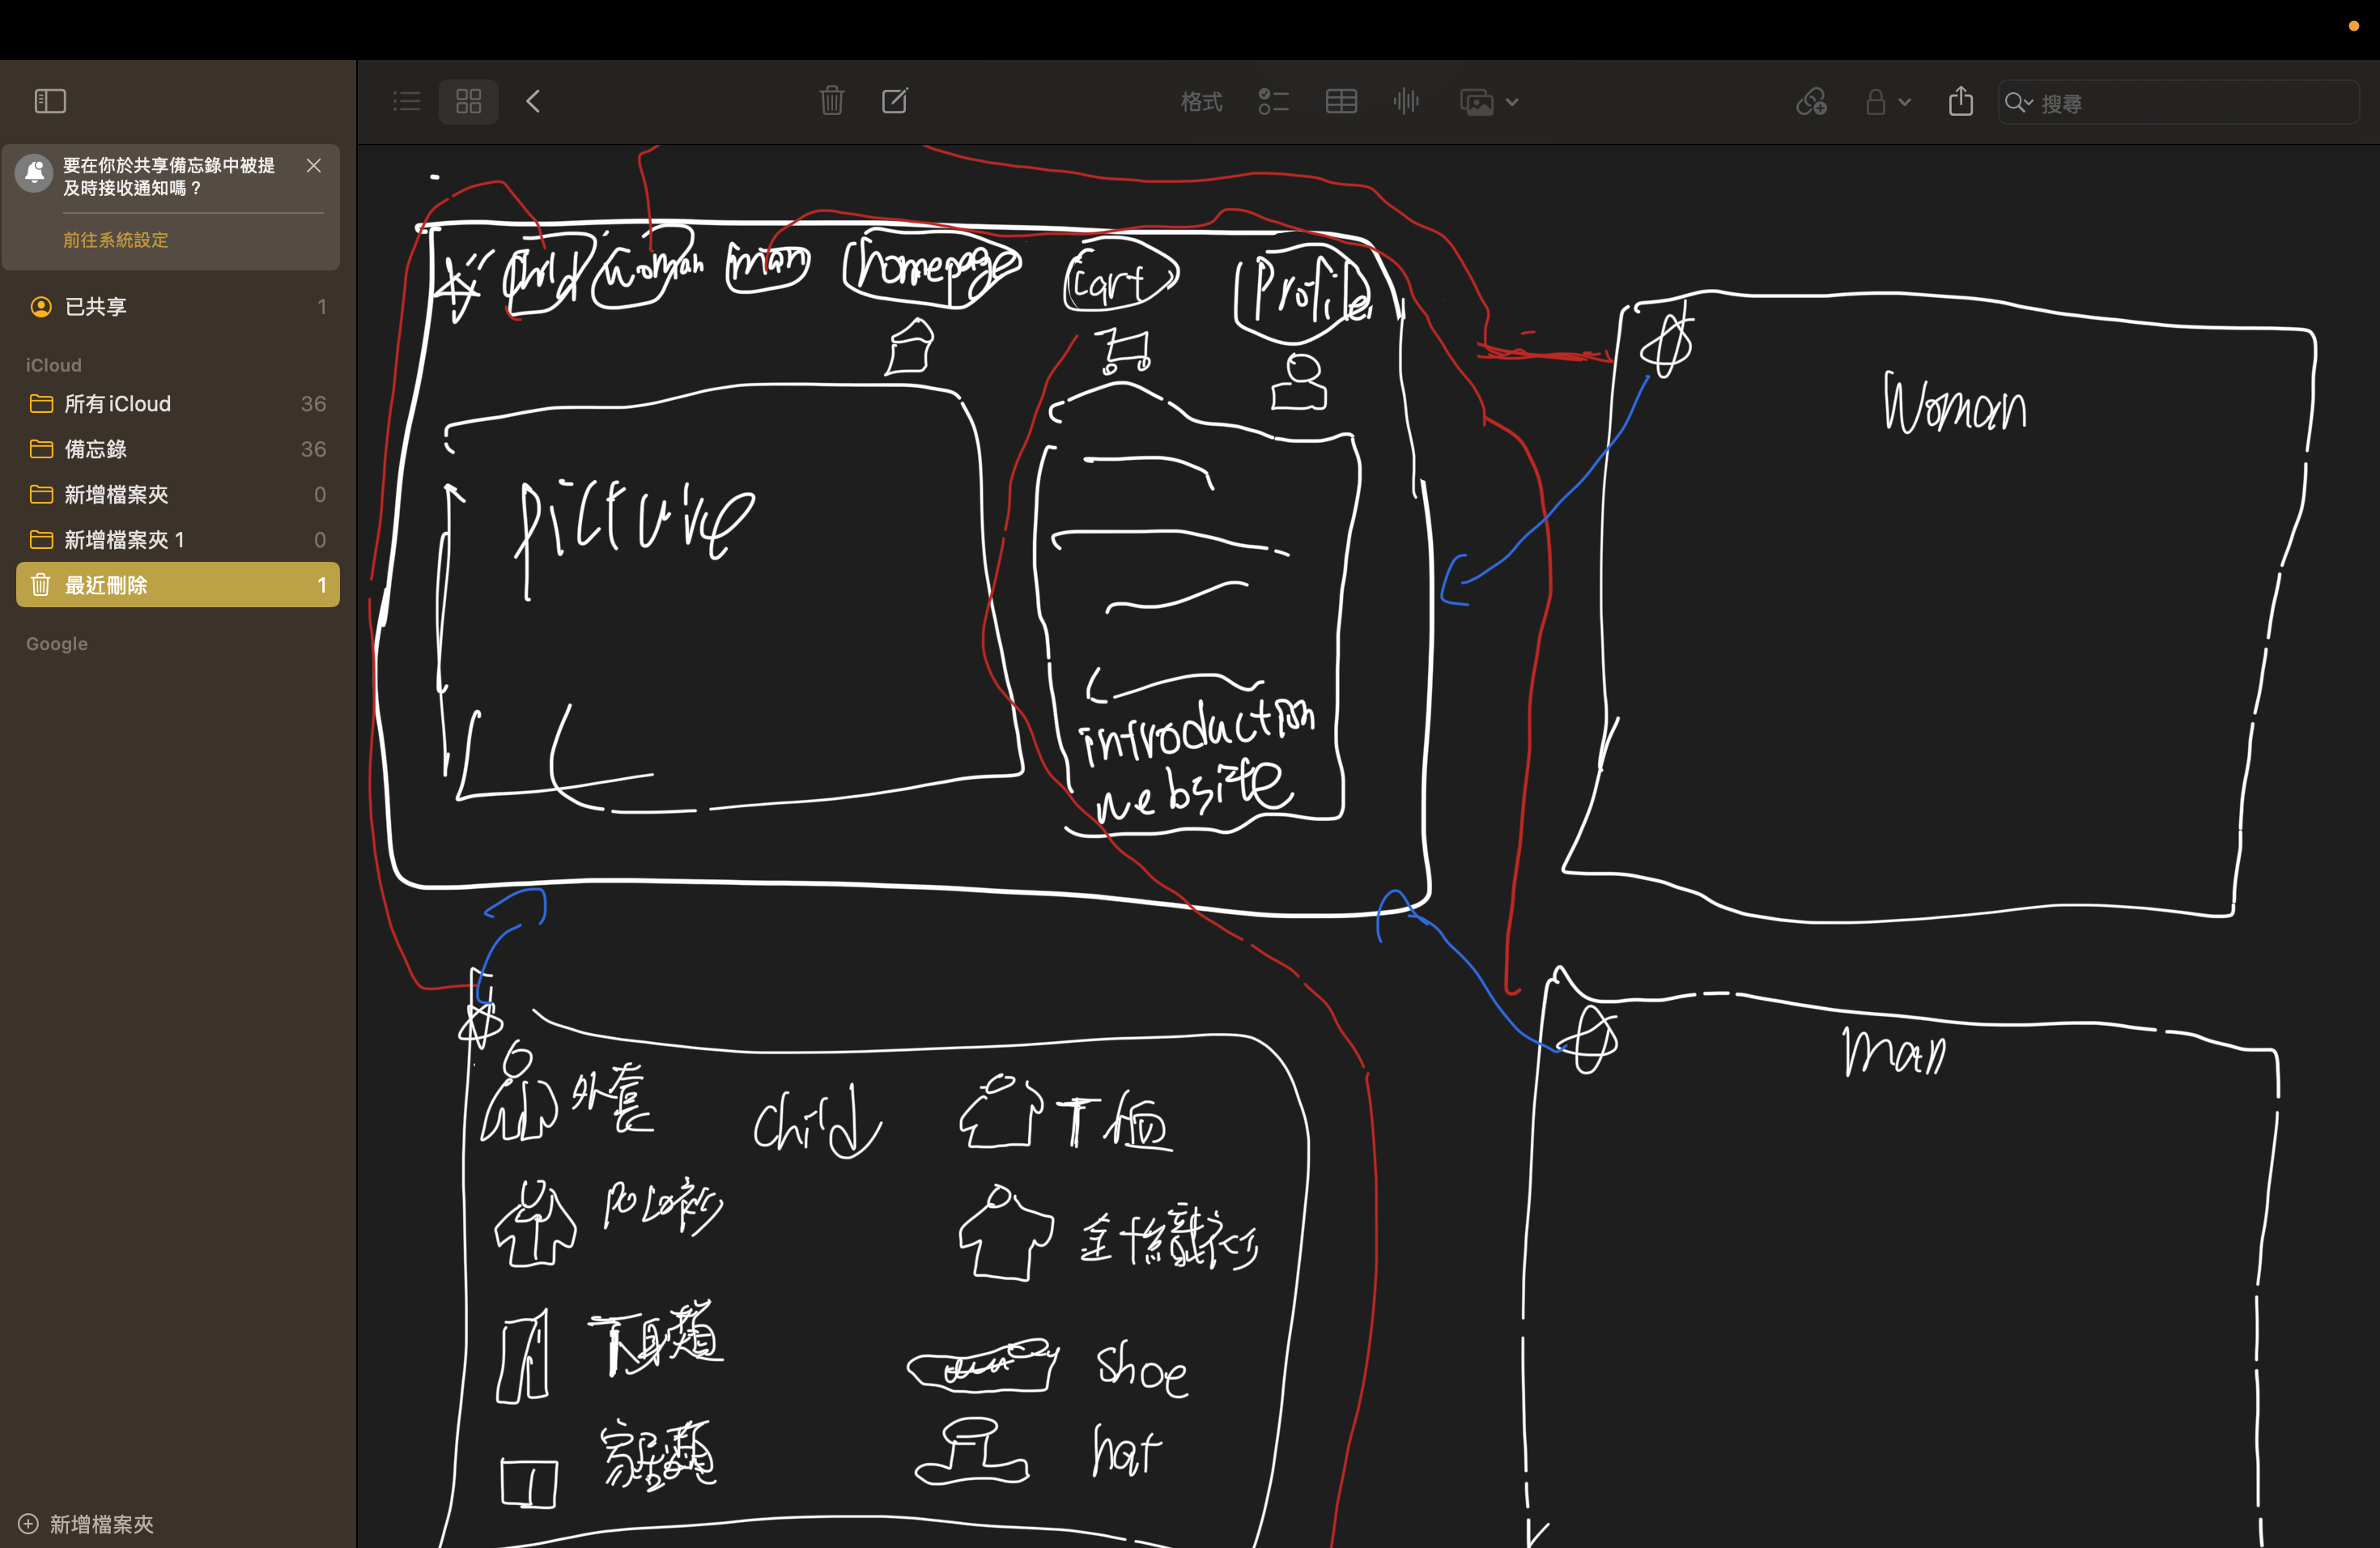 格式
搜尋
要在你於共享備忘錄中被提
及時接收通知嗎？
前往系統設定
已共享 1
iCloud
所有 iCloud 36
備忘錄 36
新增檔案夾 0
新增檔案夾 1 0
最近刪除 1
Google
新增檔案夾
child woman man homepage cart Profile
picture
introduction
website
Woman
man
外套 child T恤
POLO衫
下身類 shoe
hat